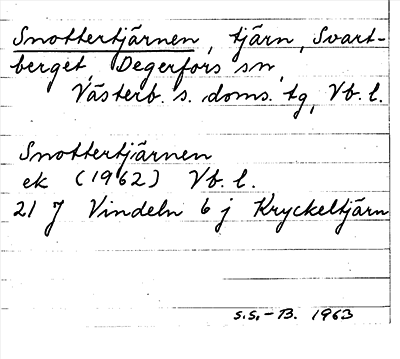 Snottertjärnen, tjärn, Svart-
berget, Degerfors sn,
Västerb. s. doms. tg, Vb. l.
Snottertjärnen
ek (1962) Vb. l.
21 J Vindeln 6 j Kryckeltjärn
S.S.-B. 1963